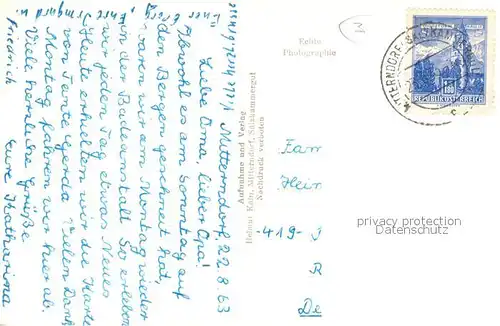 Mitterndorf, 22.8.63
Liebe Oma, lieber Opa!
Obwohl es am Sonntag auf
den Bergen geschneit hat,
waren wir am Montag wieder
in der Badeanstalt. So erleben
wir jeden Tag etwas Neues.
Heute erhielten wir die Karte
von Tante Gerda. Vielen Dank!
Montag fahren wir hier ab.
Viele herzliche Grüße
Eure Katharina
Friedrich
Irmgard u.
Aufnahme und Verlag
Helmut Kain, Mitterndorf, Salzkammergut
Nachdruck verboten
Echte
Photographie
MITTERNDORF-SALZKAMMERGUT
REPUBLIK ÖSTERREICH
Fam
Hein
-419-
J
R
De
privacy protection
Datenschutz